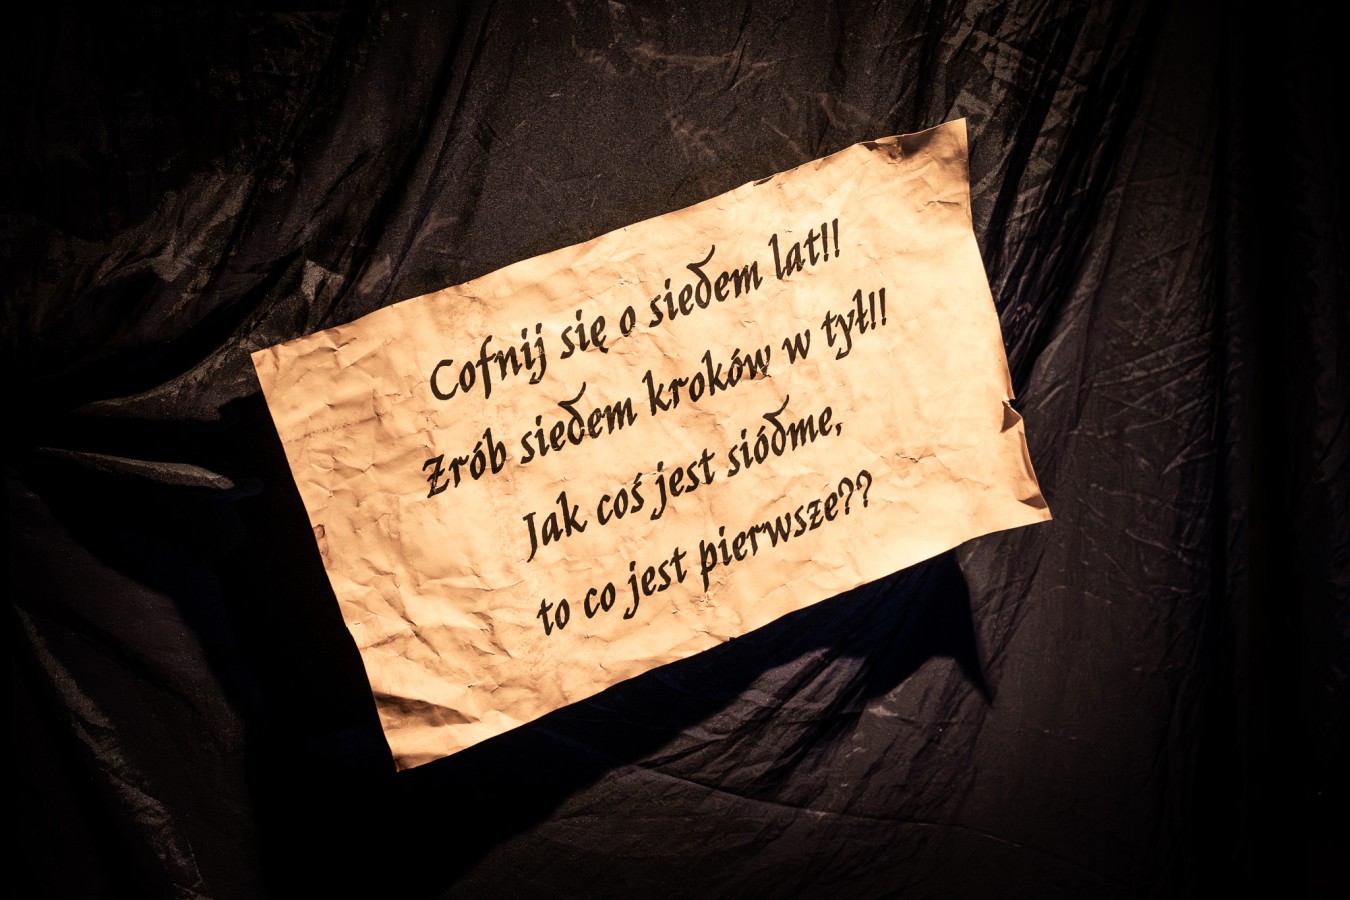 Cofnij się o siedem lat!!
Zrób siedem kroków w tył!!
Jak coś jest siódme,
to co jest pierwsze??